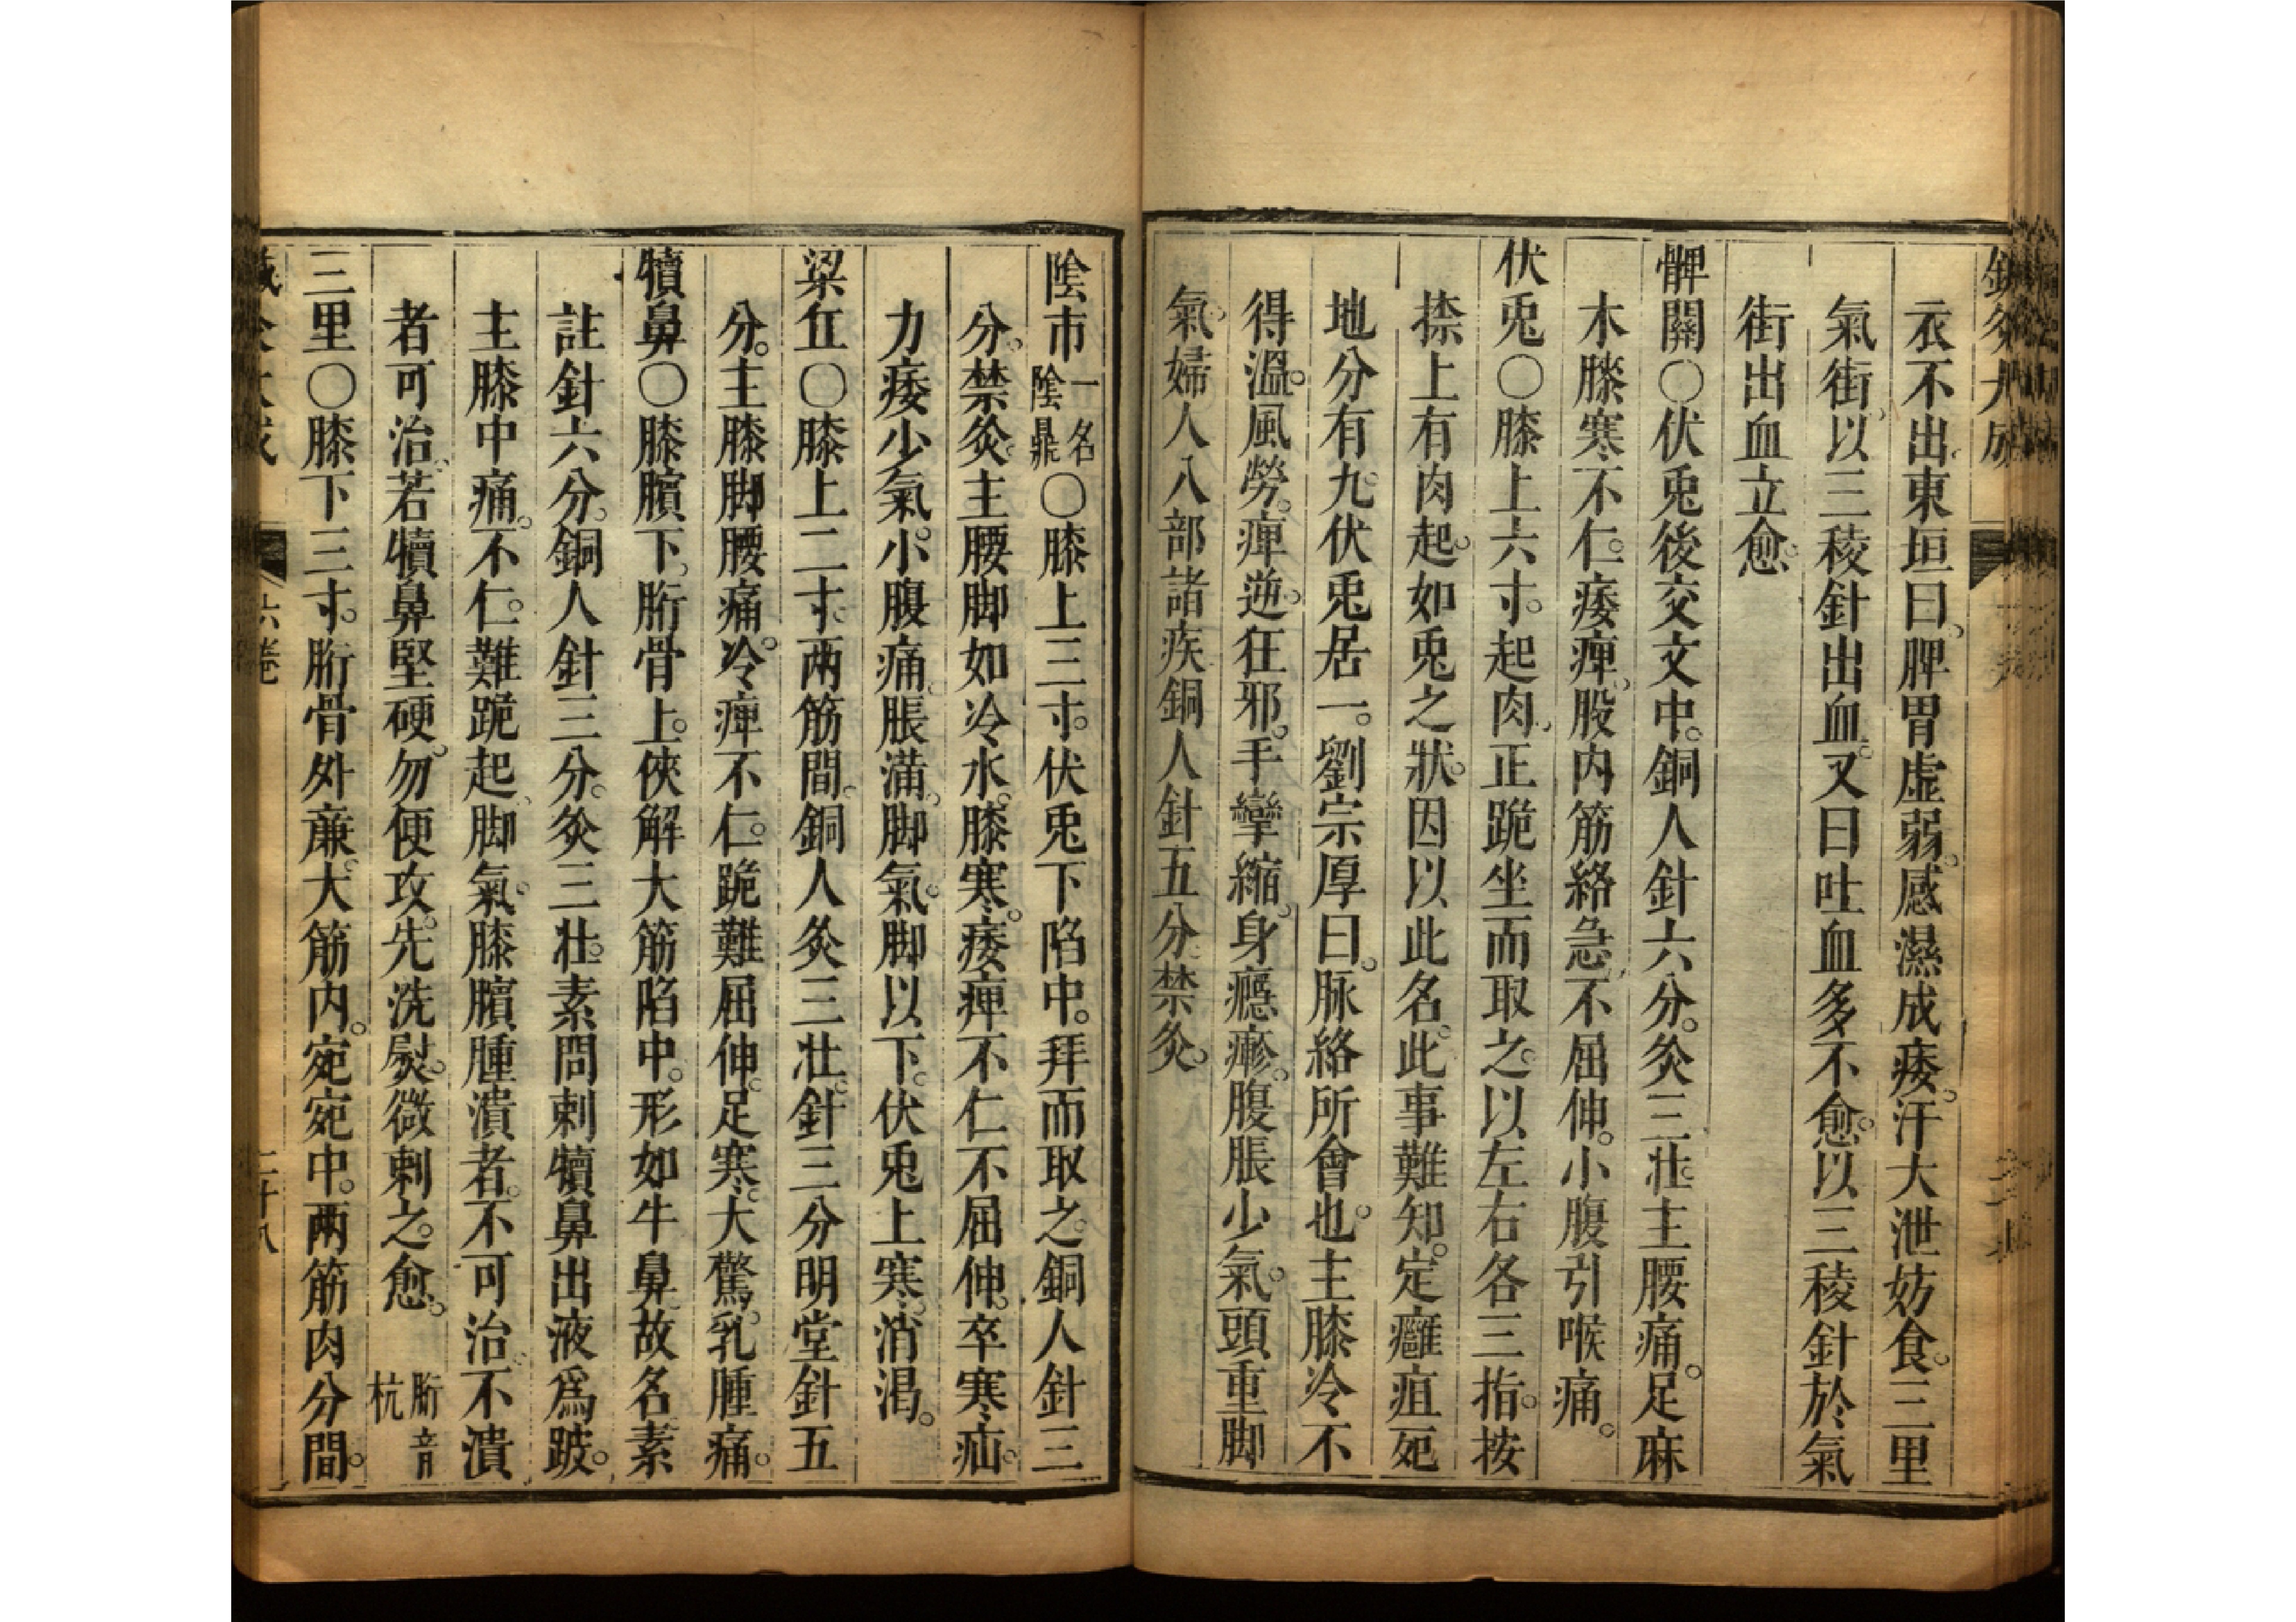 衣不出東垣曰脾胃虛弱感濕成痿汗大泄妨食三里
氣街以三稜針出血又曰吐血多不愈以三稜針於氣
街出血立愈
髀關○伏兎後交文中銅人針六分灸三壯主腰痛足麻
木膝寒不仁痿痺股內筋絡急不屈伸小腹引喉痛
伏兎○膝上六寸起肉正跪坐而取之以左右各三指按
捺上有肉起如兎之狀因以此名此事難知定癰疽死
地分有九伏兎居一劉宗厚曰脉絡所會也主膝冷不
得溫風勞痺逆狂邪手攣縮身癮瘮腹脹少氣頭重脚
氣婦人八部諸疾銅人針五分禁灸
陰市一名陰鼎○膝上三寸伏兎下陷中拜而取之銅人針三
分禁灸主腰脚如冷水膝寒痿痺不仁不屈伸卒寒疝
力痿少氣小腹痛脹滿脚氣脚以下伏兎上寒消渴
梁丘○膝上二寸兩筋間銅人灸三壯針三分明堂針五
分主膝脚腰痛冷痺不仁跪難屈伸足寒大驚乳腫痛
犢鼻○膝臏下胻骨上俠解大筋陷中形如牛鼻故名素
註針六分銅人針三分灸三壯素問刺犢鼻出液爲跛
主膝中痛不仁難跪起脚氣膝臏腫潰者不可治不潰
者可治若犢鼻堅硬勿便攻先洗熨微刺之愈 胻音杭
三里○膝下三寸胻骨外亷大筋內宛宛中兩筋肉分間
六卷 二十八